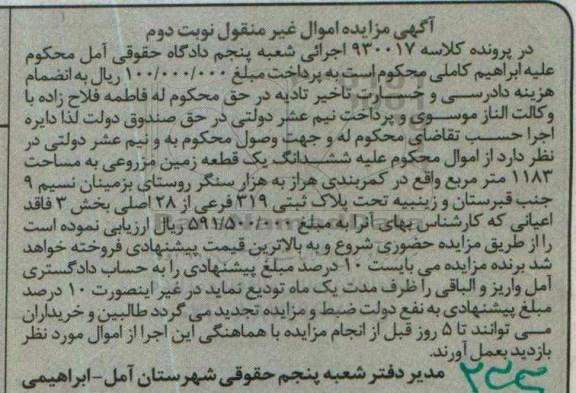 آگهی مزایده اموال غیر منقول نوبت دوم
در پرونده کلاسه ۹۳۰۰۱۷ اجرائی شعبه پنجم دادگاه حقوقی آمل محکوم
علیه ابراهیم کاملی محکوم است به پرداخت مبلغ ۱۰۰/۰۰۰/۰۰۰ ریال به انضمام
هزینه دادرسی و خسارت تاخیر تادیه در حق محکوم له فاطمه فلاح زاده با
وکالت الناز موسوی و پرداخت نیم عشر دولتی در حق صندوق دولت لذا دایره
اجرا حسب تقاضای محکوم له و جهت وصول محکوم به و نیم عشر دولتی در
نظر دارد از اموال محکوم علیه ششدانگ یک قطعه زمین مزروعی به مساحت
۱۱۸۳ متر مربع واقع در کمربندی هراز به هزار سنگر روستای بزمینان نسیم ۹
جنب قبرستان و زینبیه تحت پلاک ثبتی ۳۱۹ فرعی از ۲۸ اصلی بخش ۳ فاقد
اعیانی که کارشناس بهای آنرا به مبلغ ۵۹۱/۵۰۰/۰۰۰ ریال ارزیابی نموده است
را از طریق مزایده حضوری شروع و به بالاترین قیمت پیشنهادی فروخته خواهد
شد برنده مزایده می بایست ۱۰ درصد مبلغ پیشنهادی را به حساب دادگستری
آمل واریز و الباقی را ظرف مدت یک ماه تودیع نماید در غیر اینصورت ۱۰ درصد
مبلغ پیشنهادی به نفع دولت ضبط و مزایده تجدید می گردد طالبین و خریداران
می توانند تا ۵ روز قبل از انجام مزایده با هماهنگی این اجرا از اموال مورد نظر
بازدید بعمل آورند.
مدیر دفتر شعبه پنجم حقوقی شهرستان آمل-ابراهیمی